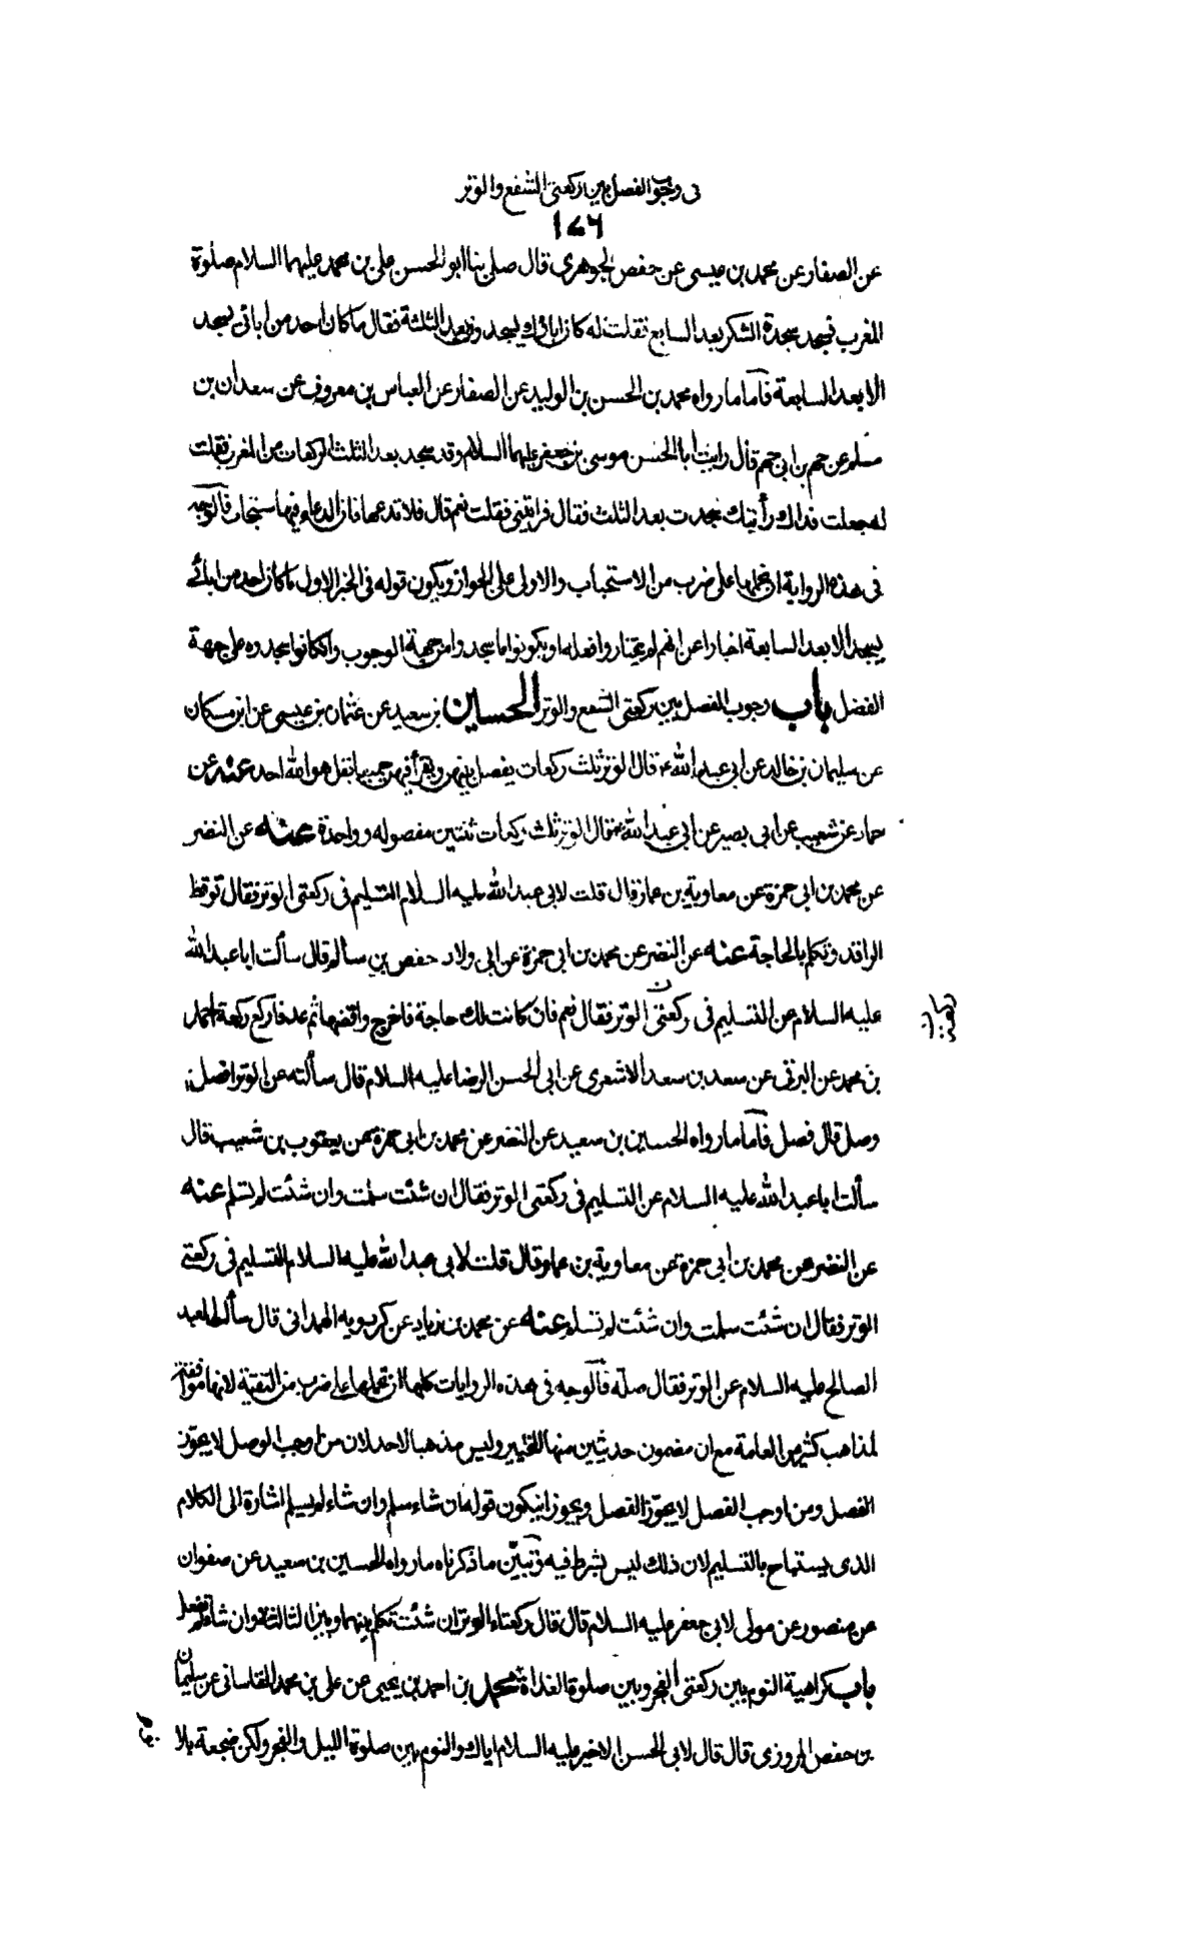 فی وجوب الفصل بین رکعتی الشفع والوتر
١٧٦
عن الصفار عن محمد بن عیسی عن حفص الجوهری قال صلی بنا ابو الحسن علی بن محمد علیهما السلام صلوة
المغرب فسجد سجدة الشکر بعد السابعة فقلت له کان اباؤک یسجدون بعد الثلثة فقال ما کان احد من ابائی یسجد
الا بعد السابعة فاما ما رواه محمد بن الحسن بن الولید عن الصفار عن العباس بن معروف عن سعدان بن
مسلم عن جهم بن ابی جهم قال رایت ابا الحسن موسی بن جعفر علیهما السلام وقد سجد بعد الثلث الرکعات من المغرب فقلت
له جعلت فداک رأیتک سجدت بعد الثلث فقال فرایتنی فقلت نعم قال فلا تدعها فان الدعاء فیها مستجاب فالوجه
فی هذه الروایة ان نحملها علی ضرب من الاستحباب والاولی علی الجواز ویکون قوله فی الخبر الاول ما کان احد من ابائی
یسجد الا بعد السابعة اخبارا عن انهم لم یختاروا فعله او یکونوا ما سجدوا من جهة الوجوب وان کانوا سجدوه علی جهة
الفضل باب وجوب الفصل بین رکعتی الشفع والوتر الحسین بن سعید عن عثمان بن عیسی عن ابن مسکان
عن سلیمان بن خالد عن ابی عبد الله ع قال الوتر ثلث رکعات یفصل بینهن ویقرأ فیهن جمیعا بقل هو الله احد عنه عن
حماد عن شعیب عن ابی بصیر عن ابی عبد الله ع قال الوتر ثلث رکعات ثنتین مفصوله وواحدة عنه عن النضر
عن محمد بن ابی حمزة عن معاویة بن عمار قال قلت لابی عبد الله علیه السلام التسلیم فی رکعتی الوتر فقال توقظ
الراقد وتکلم بالحاجة عنه عن النضر عن محمد بن ابی حمزة عن ابی ولاد حفص بن سالم قال سألت ابا عبد الله
علیه السلام عن التسلیم فی رکعتی الوتر فقال نعم فان کانت لک حاجة فاخرج واقضها ثم عد فارکع رکعة احمد
بن محمد عن البرقی عن سعد بن سعد الاشعری عن ابی الحسن الرضا علیه السلام قال سألته عن الوتر افصل ام
وصل قال فصل فاما ما رواه الحسین بن سعید عن النضر عن محمد بن ابی حمزة عن یعقوب بن شعیب قال
سألت ابا عبد الله علیه السلام عن التسلیم فی رکعتی الوتر فقال ان شئت سلمت وان شئت لم تسلم عنه
عن النضر عن محمد بن ابی حمزة عن معاویة بن عمار قال قلت لابی عبد الله علیه السلام التسلیم فی رکعتی
الوتر فقال ان شئت سلمت وان شئت لم تسلم عنه عن محمد بن زیاد عن کردویه الهمدانی قال سألت العبد
الصالح علیه السلام عن الوتر فقال صله فالوجه فی هذه الروایات کلها ان نحملها علی ضرب من التقیة لانها موافقة
لمذاهب کثیر من العامة مع ان مضمون حدیثین منها التخییر ولیس مذهبا لاحد لان من اوجب الوصل لا یجوّز
الفصل ومن اوجب الفصل لا یجوّز الفصل ویجوز ان یکون قوله ان شاء سلم وان شاء لم یسلم اشارة الی الکلام
الذی یستباح بالتسلیم لان ذلک لیس بشرط فیه ویبیّن ما ذکرناه ما رواه الحسین بن سعید عن صفوان
عن منصور عن مولی لابی جعفر علیه السلام قال قال رکعتا الوتر ان شئت تکلم بینهما وبین الثالثة وان شاء لم تفعل
باب کراهیة النوم بین رکعتی الفجر وبین صلوة الغداة محمد بن احمد بن یحیی عن علی بن محمد القاسانی عن سلیمان
بن حفص المروزی قال قال لابی الحسن الاخیر علیه السلام ایاک والنوم بین صلوة اللیل والفجر ولکن ضجعة بلا